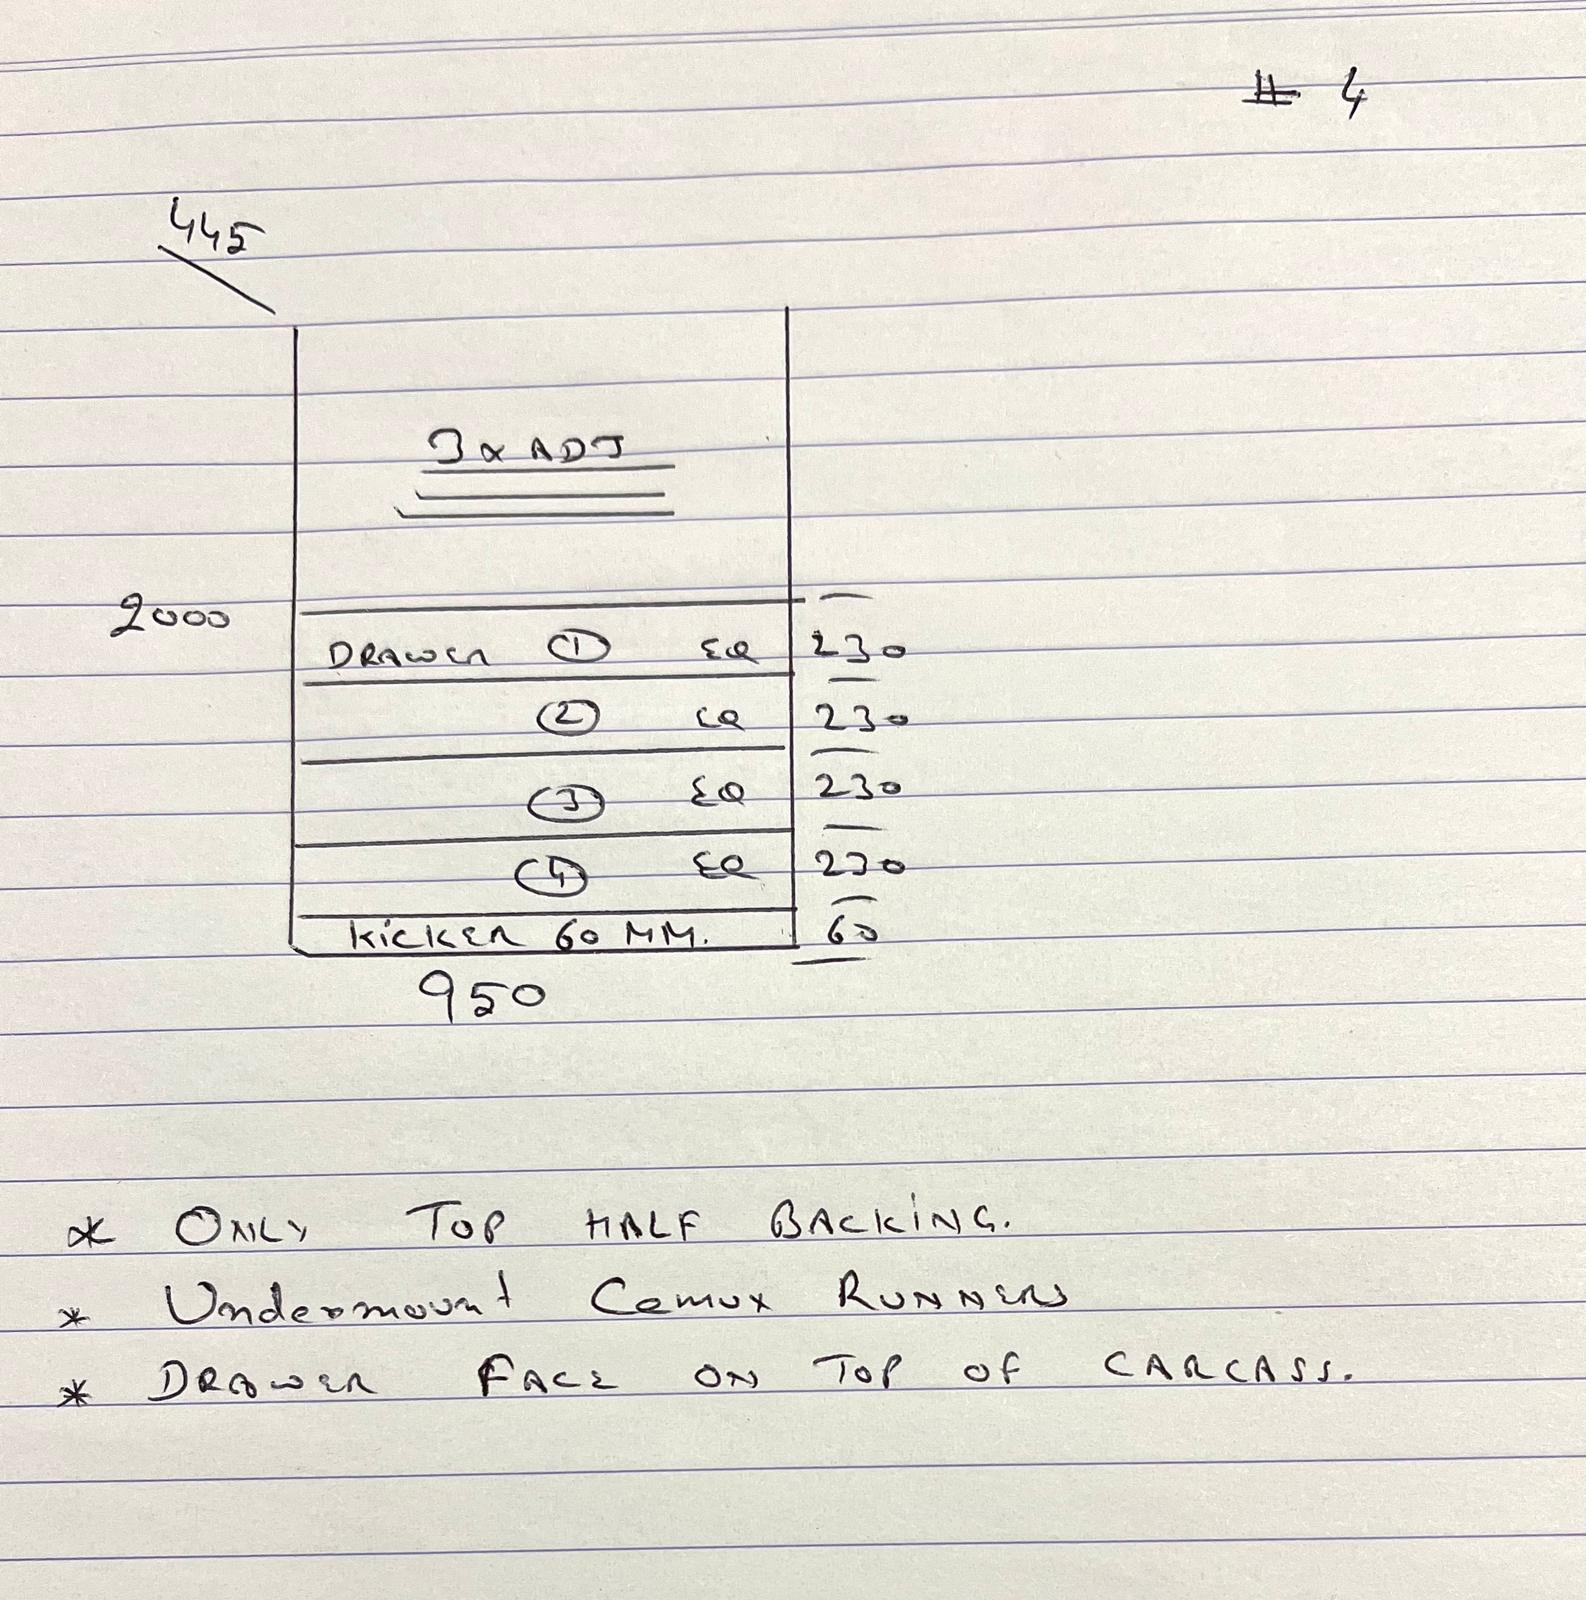 # 4
445
3 x ADJ
2000
DRAWER 1 EQ 230
2 EQ 230
3 EQ 230
4 EQ 230
KICKER 60 MM. 60
950
* ONLY TOP HALF BACKING.
* Undermount Cemux RUNNERS
* DRAWER FACE ON TOP OF CARCASS.